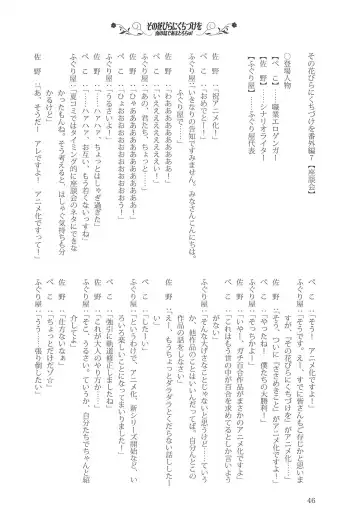 その花びらにくちづけを
その花びらにくちづけを番外編7【座談会】
○登場人物
【ぺ　こ】……職業エロゲンガー
【佐　野】……シナリオライター
【ふぐり屋】……ふぐり屋代表
佐　野「祝アニメ化！」
ぺ　こ「おめでとー！」
ふぐり屋「いきなりの告知ですみません。みなさんこんにちは。
ふぐり屋で……」
佐　野「わああああああああ！」
ぺ　こ「いええええええい！」
ふぐり屋「あの、君たち、ちょっと……」
佐　野「ひゃああああああああ！」
ぺ　こ「ひょおおおおおおおお！」
ふぐり屋「うるさいよ！」
佐　野「……ハァハァ、ちょっとはしゃぎ過ぎた」
ぺ　こ「……ハァハァ、お互い、もう若くないっすね」
ふぐり屋「夏コミではタイミング的に座談会のネタにできな
かったもんね。そう考えると、はしゃぐ気持ちも分
かるけど」
佐　野「あ、そうだー　アレですよー！　アニメ化ですってー！」
ぺ　こ「そう！　アニメ化ですよー！」
ふぐり屋「そうです。えー、すでに皆さんもご存じかと思いま
すが、『その花びらにくちづけを』がアニメ化……」
佐　野「そう、ついに『ささめきこと』がアニメ化ですよー！」
ふぐり屋「そっちかよー！」
ぺ　こ「やったね！　僕たちの大勝利！」
佐　野「いやー、ガチ百合作品がまさかのアニメ化ですよ」
ぺ　こ「これはもう世の中が百合を求めてるとしか言いよう
がない」
ふぐり屋「そんな大げさなことじゃないと思うけど……ていう
か、他作品のことはいいんだってば。自分とこの
作品の話をしなさい」
佐　野「えー、もうちょっとダラダラとくだらない話ししたー
い」
ぺ　こ「したーい」
ふぐり屋「というわけで、アニメ化、新シリーズ開始など、い
ろいろ楽しいことになってまいりました！」
ぺ　こ「強引に軌道修正しましたね」
佐　野「これが大人のやり方か……」
ふぐり屋「そこ、うるさい。ていうか、自分たちでちゃんと紹
介してよ」
佐　野「仕方ないなぁ」
ぺ　こ「ちょっとだけだゾ☆」
ふぐり屋「うう……張り倒したい」
46